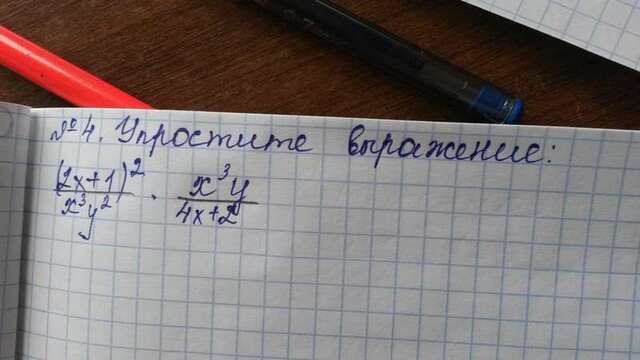 №4. Упростите выражение:
(2x+1)²/x³y² · x³y/4x+2